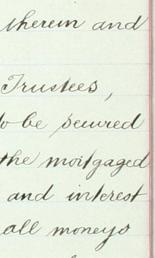 therein and
Trustees,
to be secured
the mortgaged
and interest
all moneys